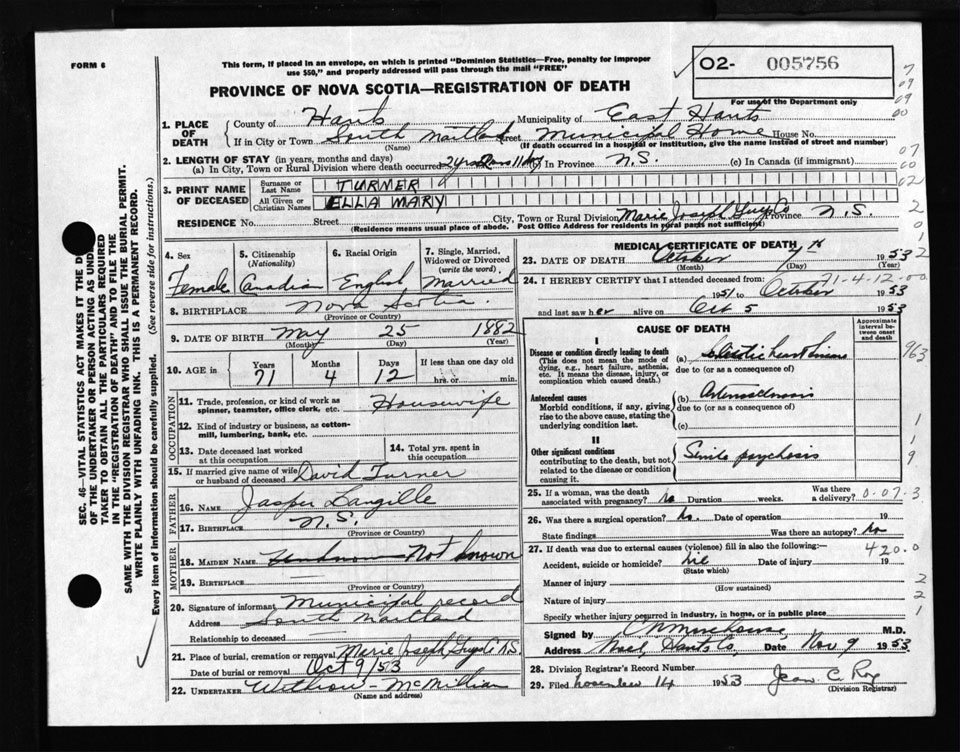 FORM 6
This form, if placed in an envelope, on which is printed "Dominion Statistics—Free, penalty for improper
use $50," and properly addressed will pass through the mail "FREE"
O2- 005756
PROVINCE OF NOVA SCOTIA—REGISTRATION OF DEATH
For use of the Department only
1. PLACE OF DEATH
County of Hants Municipality of East Hants
If in City or Town South Maitland Street Municipal Home House No.
(Name) (If death occurred in a hospital or institution, give the name instead of street and number)
2. LENGTH OF STAY (in years, months and days)
(a) In City, Town or Rural Division where death occurred (b) In Province N.S. (c) In Canada (if immigrant)
3. PRINT NAME OF DECEASED
Surname or Last Name TURNER
All Given or Christian Names ELLA MARY
RESIDENCE No. Street City, Town or Rural Division Marie Joseph Guys Co Province N.S.
(Residence means usual place of abode. Post Office Address for residents in rural parts not sufficient)
4. Sex Female
5. Citizenship (Nationality) Canadian
6. Racial Origin English
7. Single, Married, Widowed or Divorced (write the word) Married
8. BIRTHPLACE Nova Scotia
(Province or Country)
9. DATE OF BIRTH May 25 1882
(Month) (Day) (Year)
10. AGE in Years 71 Months 4 Days 12 If less than one day old
hrs. or min.
OCCUPATION
11. Trade, profession, or kind of work as spinner, teamster, office clerk, etc. Housewife
12. Kind of industry or business, as cotton-mill, lumbering, bank, etc.
13. Date deceased last worked at this occupation
14. Total yrs. spent in this occupation
15. If married give name of wife or husband of deceased David Turner
FATHER
16. NAME Jasper Langille
17. BIRTHPLACE N.S.
(Province or Country)
MOTHER
18. MAIDEN NAME Unknown Not known
19. BIRTHPLACE
(Province or Country)
20. Signature of informant Municipal record
Address South Maitland
Relationship to deceased
21. Place of burial, cremation or removal Marie Joseph Guys Co N.S.
Date of burial or removal Oct 9/53
22. UNDERTAKER Withrow - McMillian
(Name and address)
MEDICAL CERTIFICATE OF DEATH
23. DATE OF DEATH October 7th 1953
(Month) (Day) (Year)
24. I HEREBY CERTIFY that I attended deceased from: 71-4-12-00
1951 to October 1953
and last saw her alive on Oct 5 1953
CAUSE OF DEATH
Approximate interval between onset and death
I
Disease or condition directly leading to death
(This does not mean the mode of dying, e.g., heart failure, asthenia, etc. It means the disease, injury, or complication which caused death.)
(a) heart
due to (or as a consequence of)
Antecedent causes
Morbid conditions, if any, giving rise to the above cause, stating the underlying condition last.
(b) Arteriosclerosis
due to (or as a consequence of)
(c)
II
Other significant conditions
contributing to the death, but not related to the disease or condition causing it.
Senile psychosis
25. If a woman, was the death associated with pregnancy? no Duration weeks. Was there a delivery? 0-07-3
26. Was there a surgical operation? no. Date of operation 19
State findings Was there an autopsy? no
27. If death was due to external causes (violence) fill in also the following:— 420.0
Accident, suicide or homicide? nil Date of injury 19
(State which)
Manner of injury
(How sustained)
Nature of injury
Specify whether injury occurred in industry, in home, or in public place
Signed by Morehouse, M.D.
Address Noel, Hants Co, Date Nov 9 1953
28. Division Registrar's Record Number
29. Filed November 14 1953 Jean C. Roy
(Division Registrar)
SEC. 46—VITAL STATISTICS ACT MAKES IT THE
OF THE UNDERTAKER OR PERSON ACTING AS
TAKER TO OBTAIN ALL THE PARTICULARS REQUIRED
IN THE "REGISTRATION OF DEATH" AND TO FILE THE
SAME WITH THE DIVISION REGISTRAR WHO SHALL ISSUE THE BURIAL PERMIT.
WRITE PLAINLY WITH UNFADING INK. THIS IS A PERMANENT RECORD.
Every item of information should be carefully supplied. (See reverse side for instructions.)
7
09
09
00
07
00
02
2
0
1
2
963
1
1
9
2
2
1